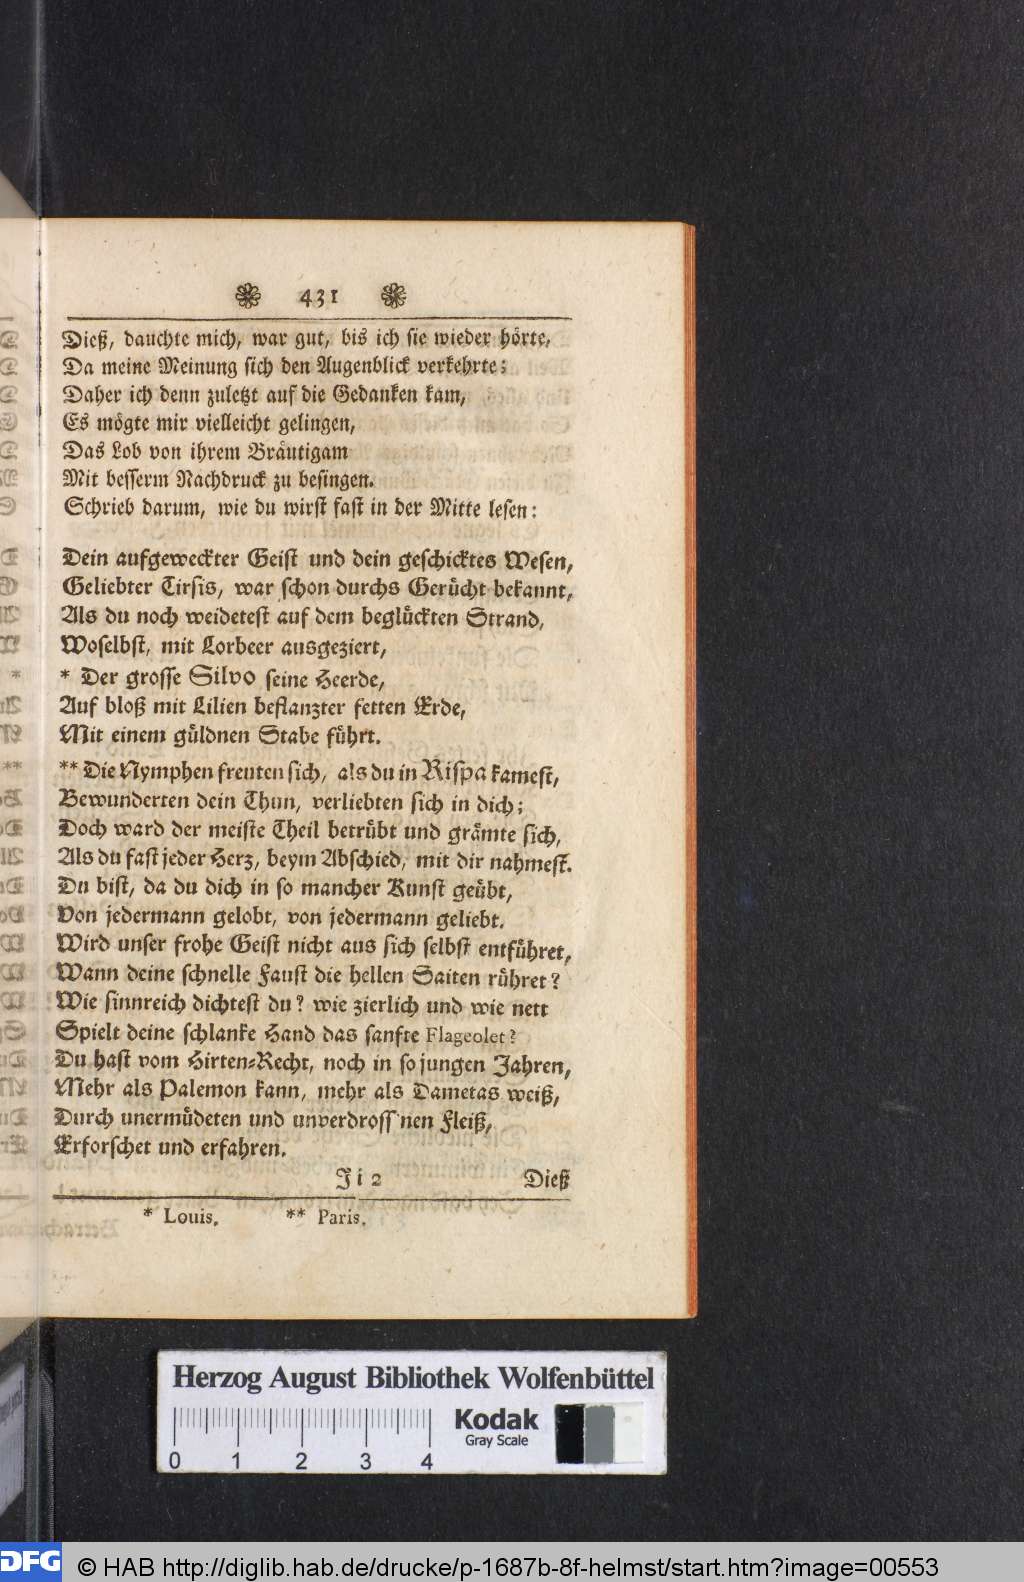 431
Dieß, dauchte mich, war gut, bis ich sie wieder hörte,
Da meine Meinung sich den Augenblick verkehrte;
Daher ich denn zuletzt auf die Gedanken kam,
Es mögte mir vielleicht gelingen,
Das Lob von ihrem Bräutigam
Mit besserm Nachdruck zu besingen.
Schrieb darum, wie du wirst fast in der Mitte lesen:
Dein aufgeweckter Geist und dein geschicktes Wesen,
Geliebter Tirsis, war schon durchs Gerücht bekannt,
Als du noch weidetest auf dem beglückten Strand,
Woselbst, mit Lorbeer ausgeziert,
* Der grosse Silvo seine Heerde,
Auf bloß mit Lilien beflanzter fetten Erde,
Mit einem güldnen Stabe führt.
** Die Nymphen freuten sich, als du in Rispa kamest,
Bewunderten dein Thun, verliebten sich in dich;
Doch ward der meiste Theil betrübt und grämte sich,
Als du fast jeder Herz, beym Abschied, mit dir nahmest.
Du bist, da du dich in so mancher Kunst geübt,
Von jedermann gelobt, von jedermann geliebt.
Wird unser frohe Geist nicht aus sich selbst entführet,
Wann deine schnelle Faust die hellen Saiten rühret?
Wie sinnreich dichtest du? wie zierlich und wie nett
Spielt deine schlanke Hand das sanfte Flageolet?
Du hast vom Hirten-Recht, noch in so jungen Jahren,
Mehr als Palemon kann, mehr als Dametas weiß,
Durch unermüdeten und unverdross'nen Fleiß,
Erforschet und erfahren.
Ji 2 Dieß
* Louis. ** Paris.
Herzog August Bibliothek Wolfenbüttel
Kodak
Gray Scale
0 1 2 3 4
DFG © HAB http://diglib.hab.de/drucke/p-1687b-8f-helmst/start.htm?image=00553